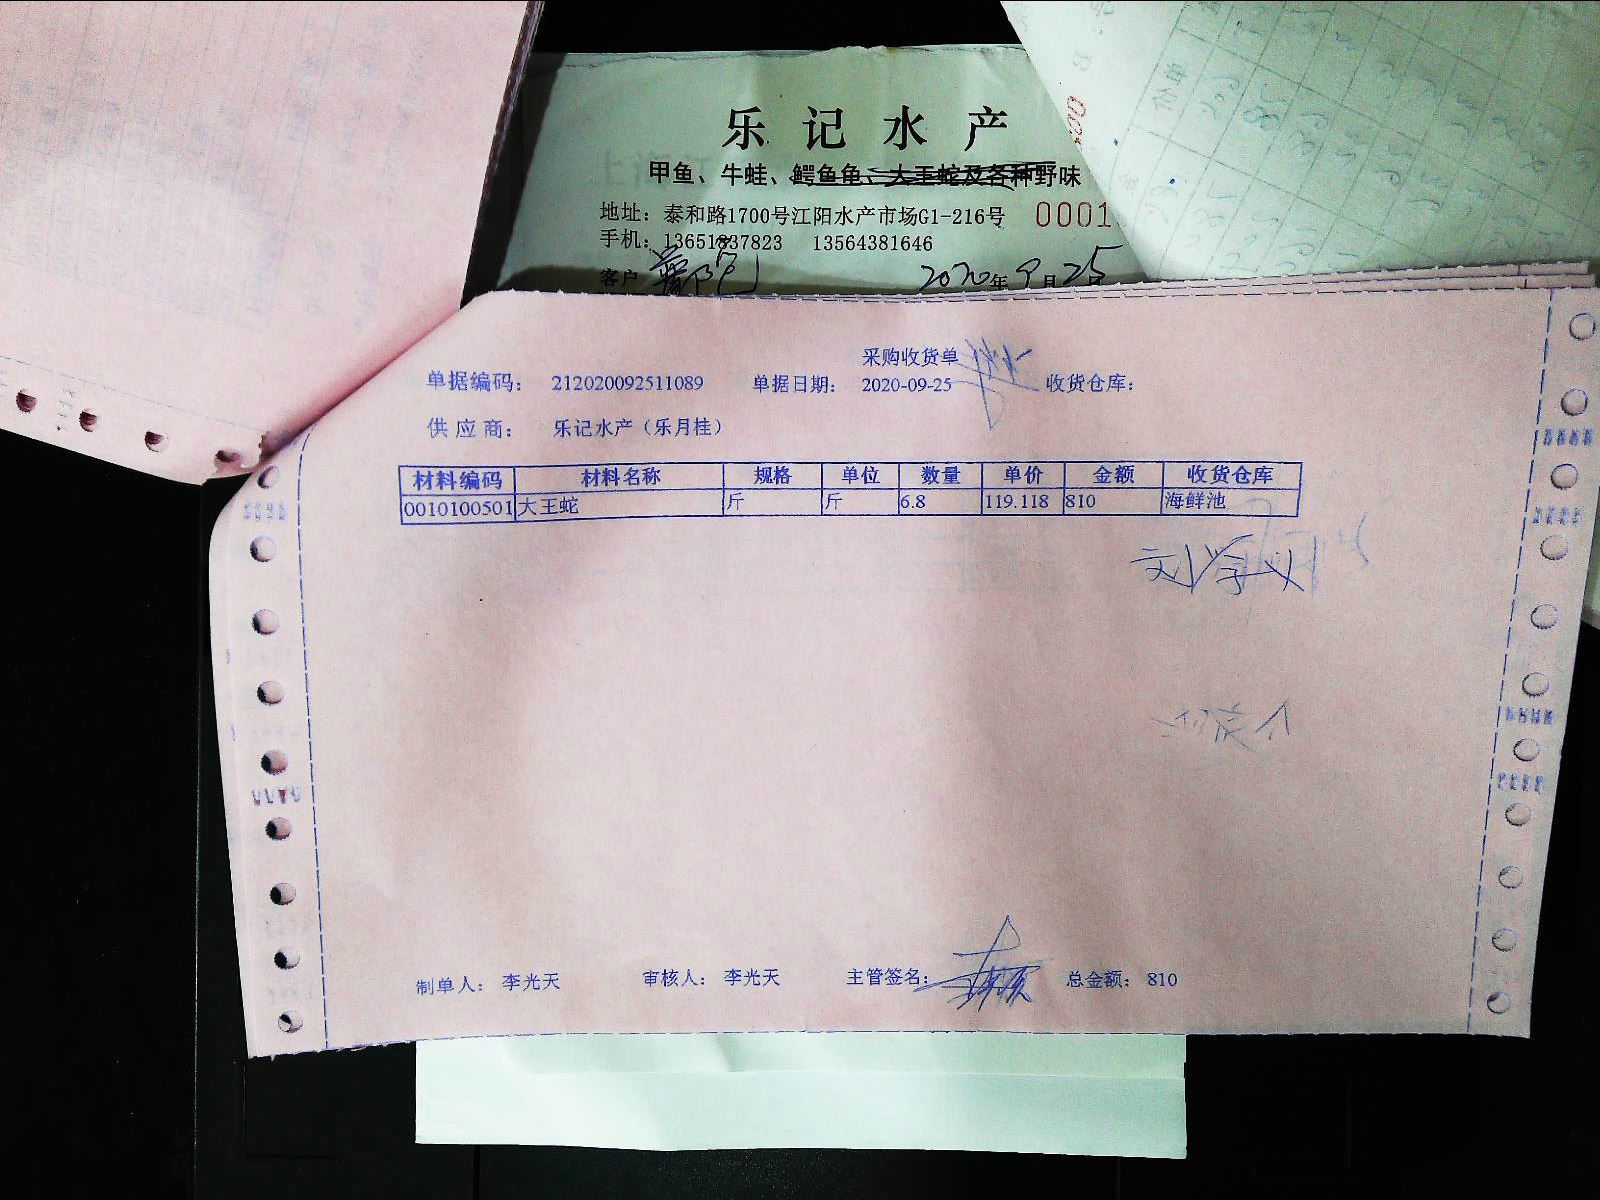 乐记水产
甲鱼、牛蛙、鳄鱼龟、大王蛇及各种野味
地址：泰和路1700号江阳水产市场G1-216号 0001
手机：13651837823 13564381646
客户 2020年9月25日
采购收货单
单据编码： 212020092511089 单据日期： 2020-09-25 收货仓库：
供应商： 乐记水产（乐月桂）
材料编码 材料名称 规格 单位 数量 单价 金额 收货仓库
0010100501 大王蛇 斤 斤 6.8 119.118 810 海鲜池
制单人： 李光天 审核人： 李光天 主管签名： 总金额： 810